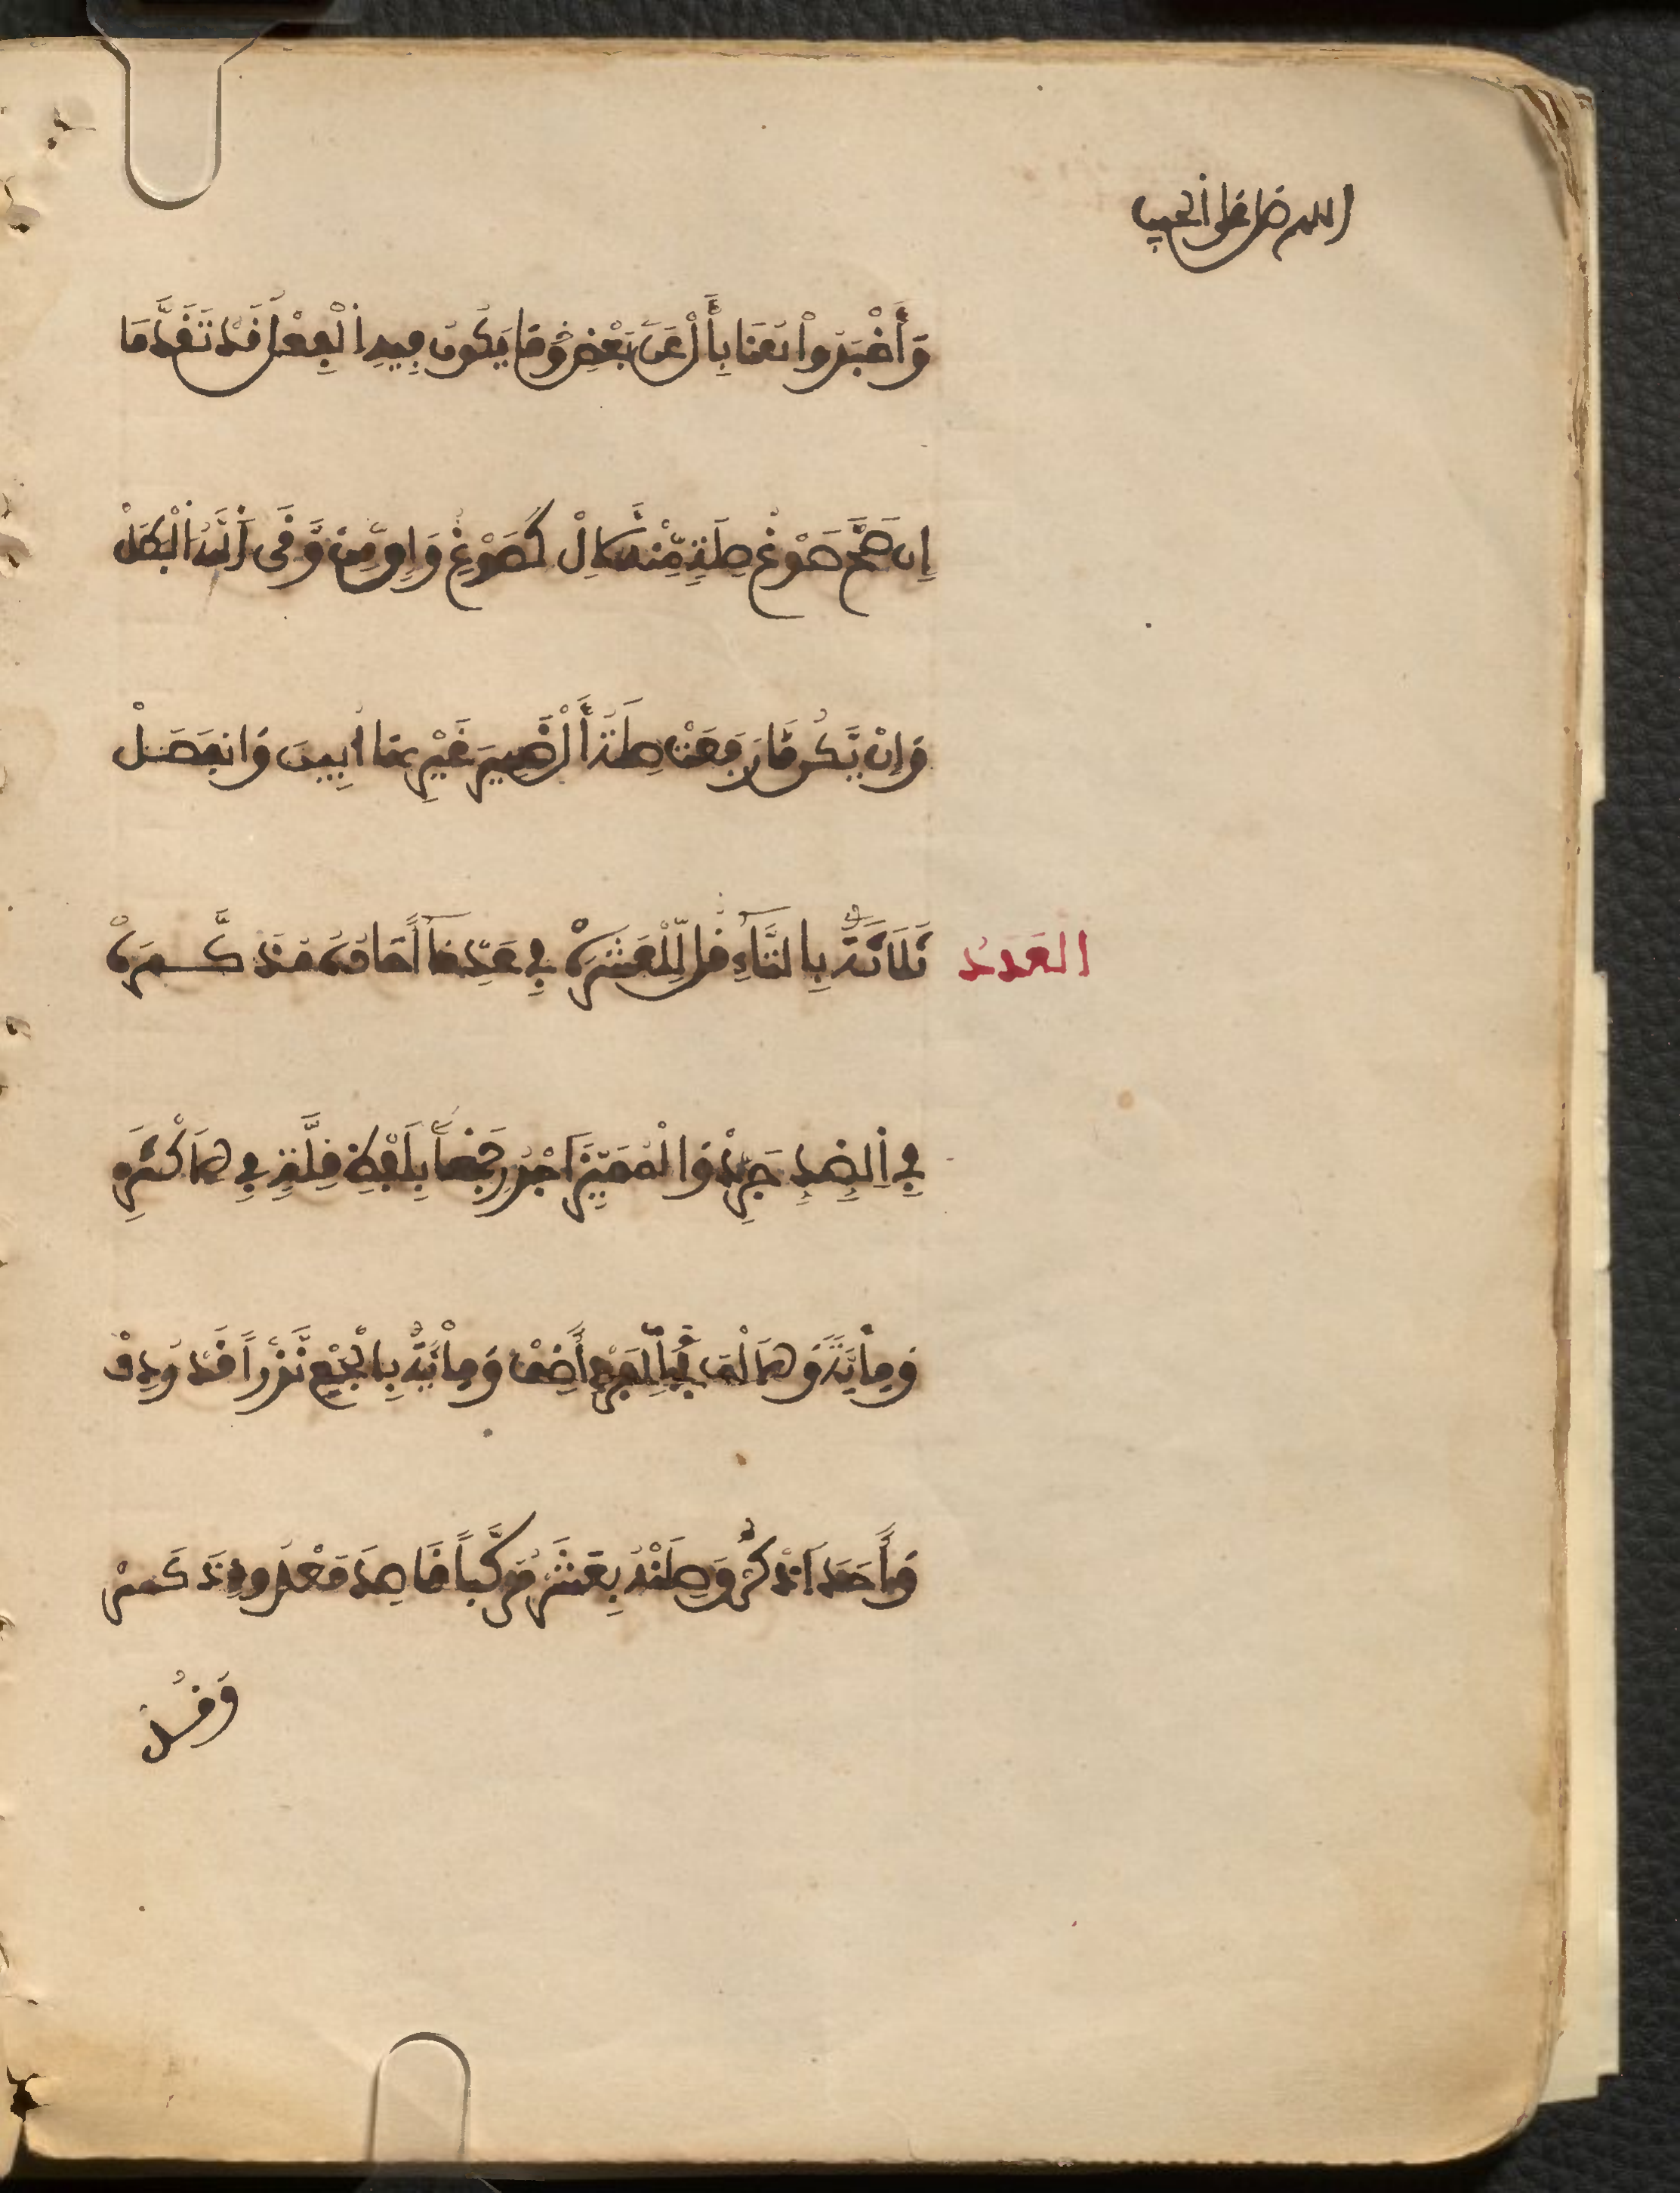 اللهم صل على الحبيب
وَأَخْبَرُوا هُنَا بِأَلْ عَنْ بَعْضِ مَا يَكُونُ فِيهِ الْفِعْلُ قَدْ تَقَدَّمَا
إِن صَحَّ صَوْغُ صِلَةٍ مِّنْهُ لِأَلْ كَصَوْغِ وَاقٍ مِّن وَّقَى اللَّهُ الْبَطَلْ
وَإِنْ يَّكُن مَّا رَفَعَتْ صِلَةُ أَلْ ضَمِيرَ غَيْرِهَا أُبِينَ وَانفَصَلْ
العَدَدُ ثَلَاثَةً بِالتَّاءِ قُل لِّلْعَشَرَهْ فِي عَدِّ مَا آحَادُهُ مُذَكَّرَهْ
فِي الضِّدِّ جَرِّدْ وَالْمُمَيِّزَ اجْرُرِ جَمْعاً بِلَفْظِ قِلَّةٍ فِي الْأَكْثَرِ
وَمِائَةً وَالْأَلْفَ لِلْفَرْدِ أَضِفْ وَمِائَةٌ بِالْجَمْعِ نَزْراً قَدْ رُدِفْ
وَأَحَدَ اذْكُرْ وَصِلَنْهُ بِعَشَرْ مُرَكِّباً قَاصِدَ مَعْدُودٍ ذَكَرْ
وَقُل